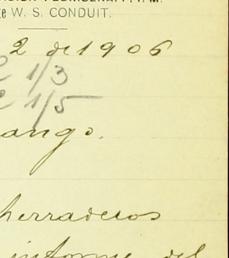 te W. S. CONDUIT.
2 de 1906
1/3
1/5
ango.
herraderos
informe del